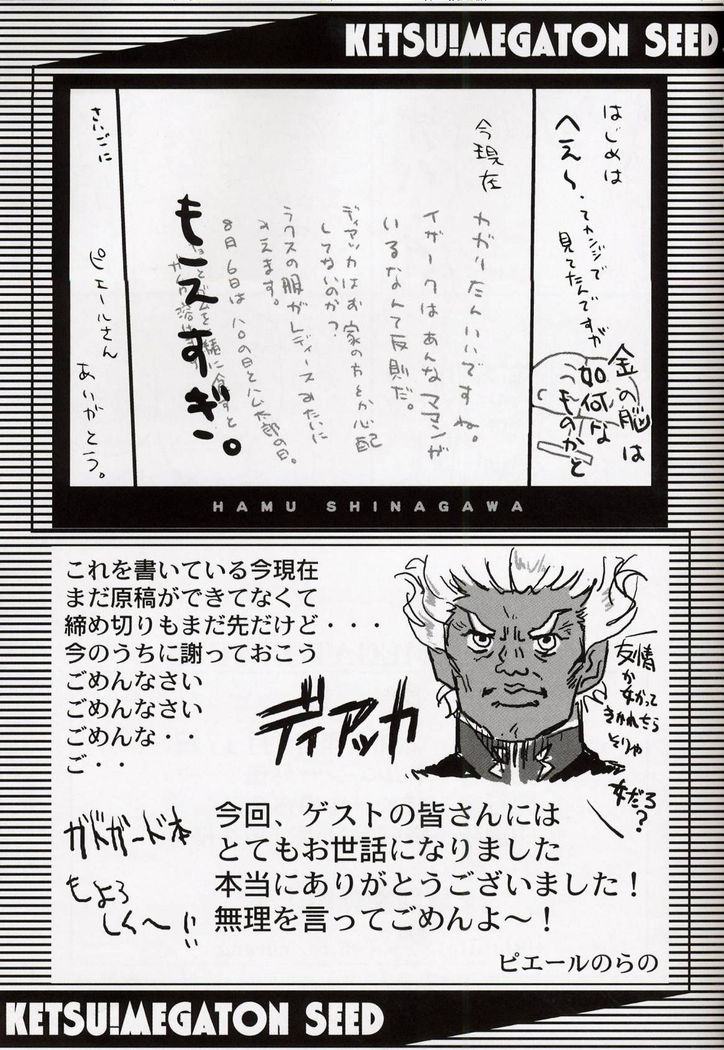 KETSU!MEGATON SEED
はじめは
へえ〜、てカンジで
見てたんですが
金の脳は
如何な
ものかと
今現在
カガリたんいいですね。
イザークはあんなママンが
いるなんて反則だ。
ディアッカはお家の方とか心配
してないのか?
ラクスの服がレディースみたいに
みえます。
8月6日はハロの日とハム太郎の日。
もえすぎ。
さいごに
ピエールさん
ありがとう。
HAMU SHINAGAWA
これを書いている今現在
まだ原稿ができてなくて
締め切りもまだ先だけど・・・
今のうちに謝っておこう
ごめんなさい
ごめんなさい
ごめんな・・
ご・・
ディアッカ
友情
か
女かって
きかれたら
そりゃ
女だろ
?
ガドガード本
もよろ
しく〜
今回、ゲストの皆さんには
とてもお世話になりました
本当にありがとうございました!
無理を言ってごめんよ〜!
ピエールのらの
KETSU!MEGATON SEED